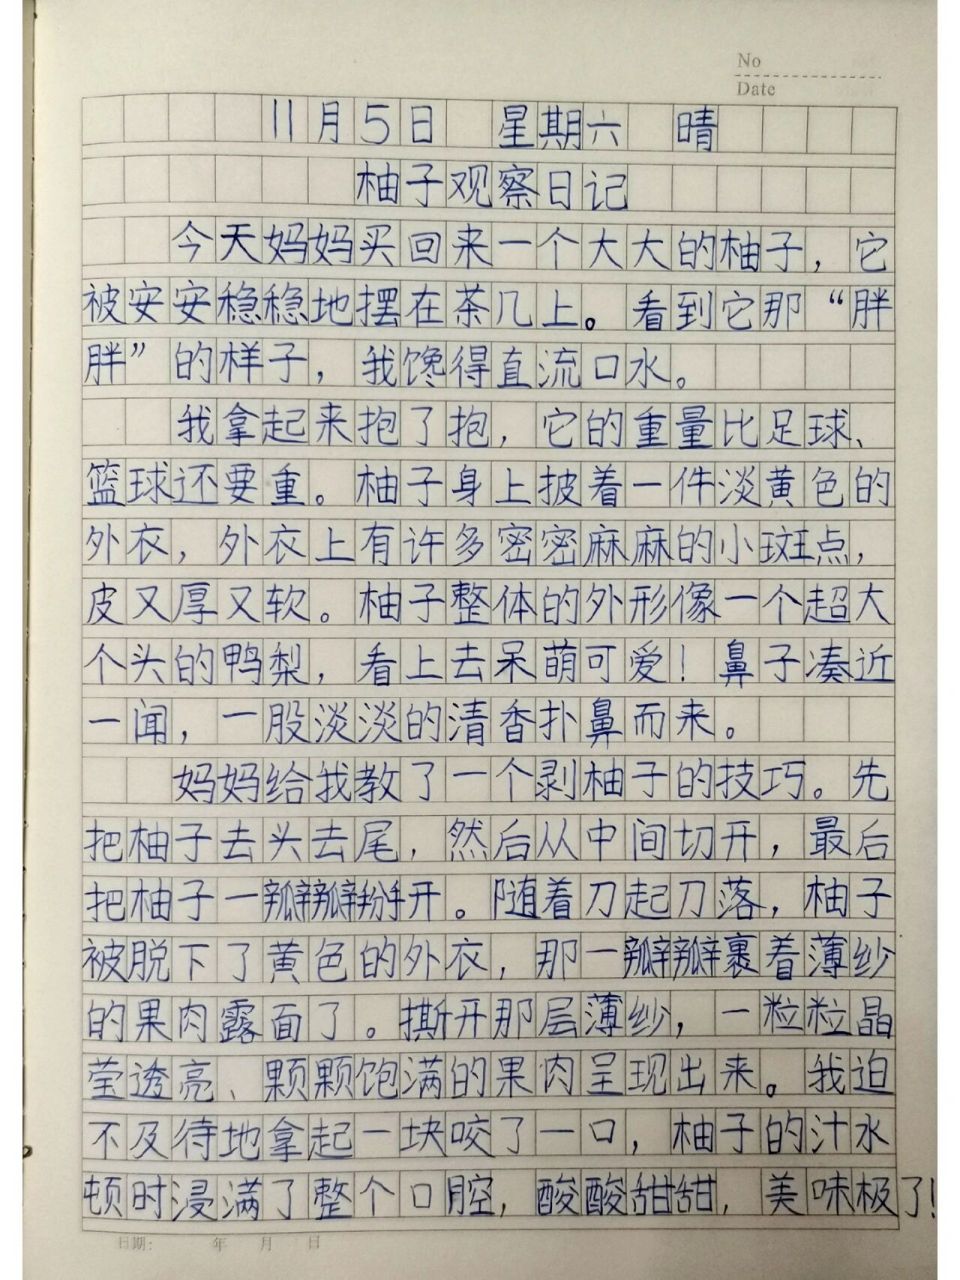 No
Date
11月5日 星期六 晴
柚子观察日记
今天妈妈买回来一个大大的柚子，它
被安安稳稳地摆在茶几上。看到它那“胖
胖”的样子，我馋得直流口水。
我拿起来抱了抱，它的重量比足球、
篮球还要重。柚子身上披着一件淡黄色的
外衣，外衣上有许多密密麻麻的小斑点，
皮又厚又软。柚子整体的外形像一个超大
个头的鸭梨，看上去呆萌可爱！鼻子凑近
一闻，一股淡淡的清香扑鼻而来。
妈妈给我教了一个剥柚子的技巧。先
把柚子去头去尾，然后从中间切开，最后
把柚子一瓣瓣掰开。随着刀起刀落，柚子
被脱下了黄色的外衣，那一瓣瓣裹着薄纱
的果肉露面了。撕开那层薄纱，一粒粒晶
莹透亮、颗颗饱满的果肉呈现出来。我迫
不及待地拿起一块咬了一口，柚子的汁水
顿时浸满了整个口腔，酸酸甜甜，美味极了！
日期： 年 月 日